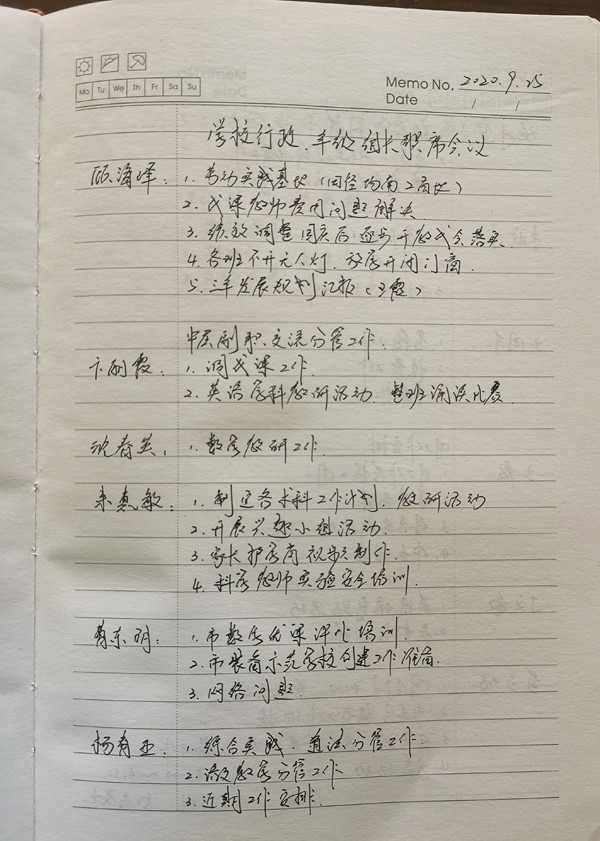 Mo Tu We Th Fr Sa Su
Memo No. 2020.9.25
Date / /
学校行政、年级组长职席会议
顾海峰： 1. 劳动实践基地（田径场南2亩地）
2. 代课教师费用问题解决.
3. 绩效调整国庆后逐步开教代会落实
4. 各班不开无人灯、放学开闭门窗
5. 三年发展规划汇报（王霞）
中层副职交流分管工作.
卞丽霞： 1. 调代课工作.
2. 英语学科教研活动 整班诵读比赛
沈春英： 1. 数学教研工作.
朱惠敏： 1. 制定各术科工作计划、教研活动
2. 开展兴趣小组活动.
3. 家长护学岗视频制作.
4. 科学教师实验安全培训.
曹东明： 1. 市数学优课评比培训.
2. 市装备示范学校创建工作准备.
3. 网络问题.
杨育亚： 1. 综合实践、道法分管工作.
2. 语文教学分管工作
3. 近期工作安排.